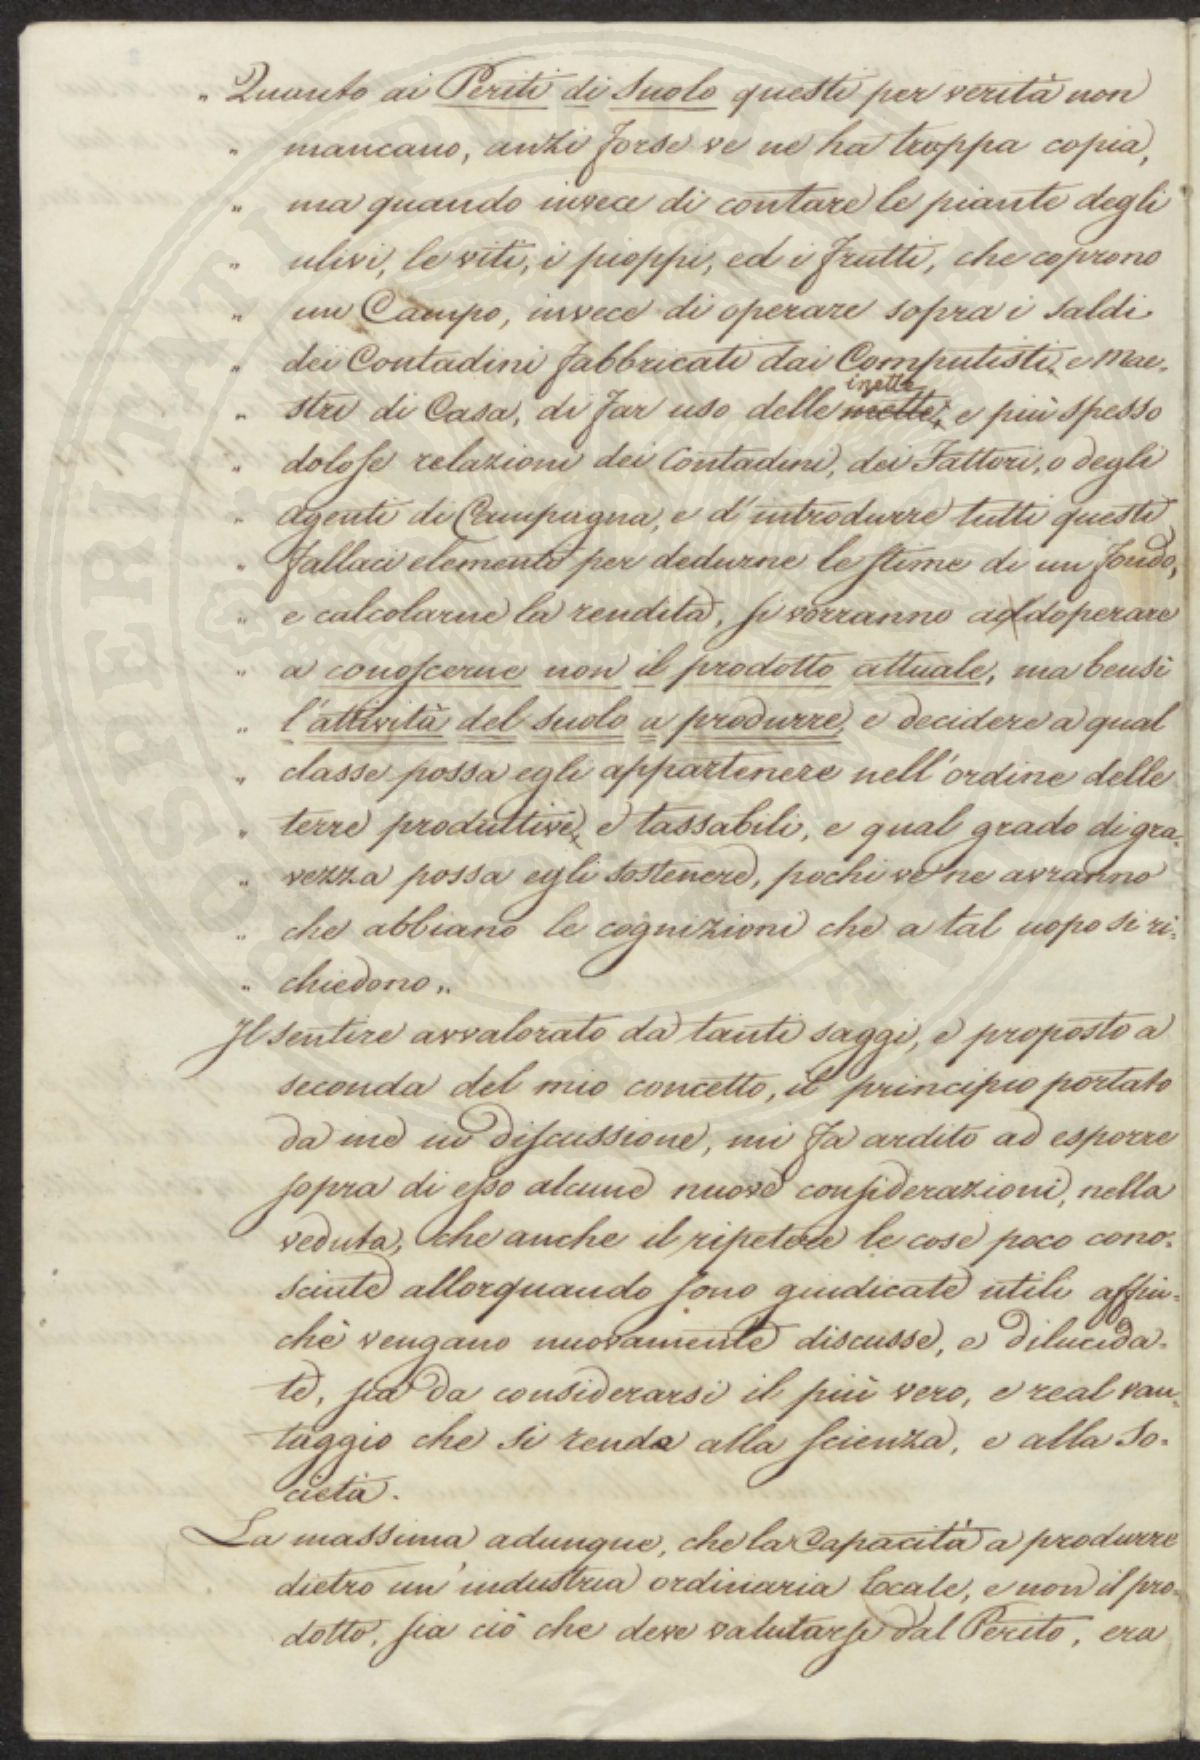 „ Quanto ai Periti di Suolo questi per verità non
„ mancano, anzi forse ve ne ha troppa copia,
„ ma quando invece di contare le piante degli
„ ulivi, le viti, i pioppi, ed i frutti, che coprono
„ un Campo, invece di operare sopra i saldi
„ dei Contadini fabbricati dai Computisti, e Mae-
„ stri di Casa, di far uso delle inette, e più spesso
„ dolose relazioni dei Contadini, dei Fattori, o degli
„ agenti di Campagna, e d'introdurre tutti questi
„ fallaci elementi per dedurne le stime di un fondo,
„ e calcolarne la rendita, si vorranno addoperare
„ a conoscerne non il prodotto attuale, ma bensì
„ l'attività del suolo a produrre, e decidere a qual
„ classe possa egli appartenere nell'ordine delle
„ terre produttive, e tassabili, e qual grado di gra-
„ vezza possa egli sostenere, pochi ve ne avranno
„ che abbiano le cognizioni che a tal uopo si ri-
„ chiedono „
Il sentire avvalorato da tanti saggi, e proposto a
seconda del mio concetto, il principio portato
da me in discussione, mi fa ardito ad esporre
sopra di esso alcune nuove considerazioni, nella
veduta, che anche il ripetere le cose poco cono-
sciute allorquando sono giudicate utili affin-
chè vengano nuovamente discusse, e dilucida-
te, sia da considerarsi il più vero, e real van-
taggio che si renda alla scienza, e alla So-
cietà.
La massima adunque, che la Capacità a produrre
dietro un'industria ordinaria locale, e non il pro-
dotto, sia ciò che deve valutarsi dal Perito, era